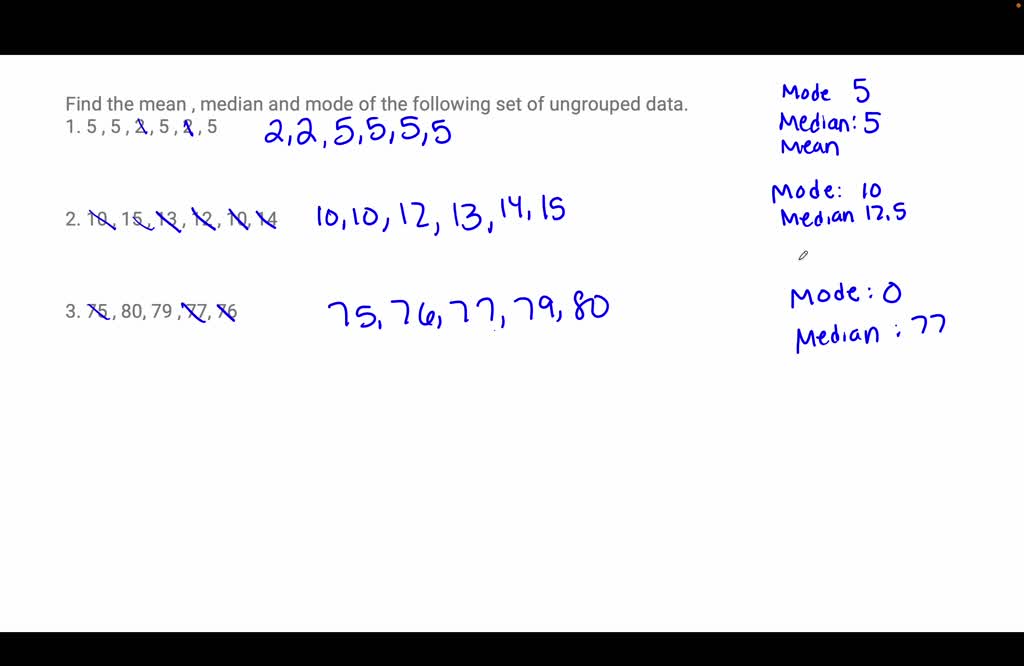 Find the mean , median and mode of the following set of ungrouped data.
1. 5 , 5 , 2 , 5 , 2 , 5 2,2,5,5,5,5
2. 10 , 15 , 13 , 12 , 10 , 14 10,10,12,13,14,15
3. 75 , 80 , 79 , 77 , 76 75,76,77,79,80
Mode 5
Median: 5
Mean
Mode: 10
Median 12.5
Mode: 0
Median : 77